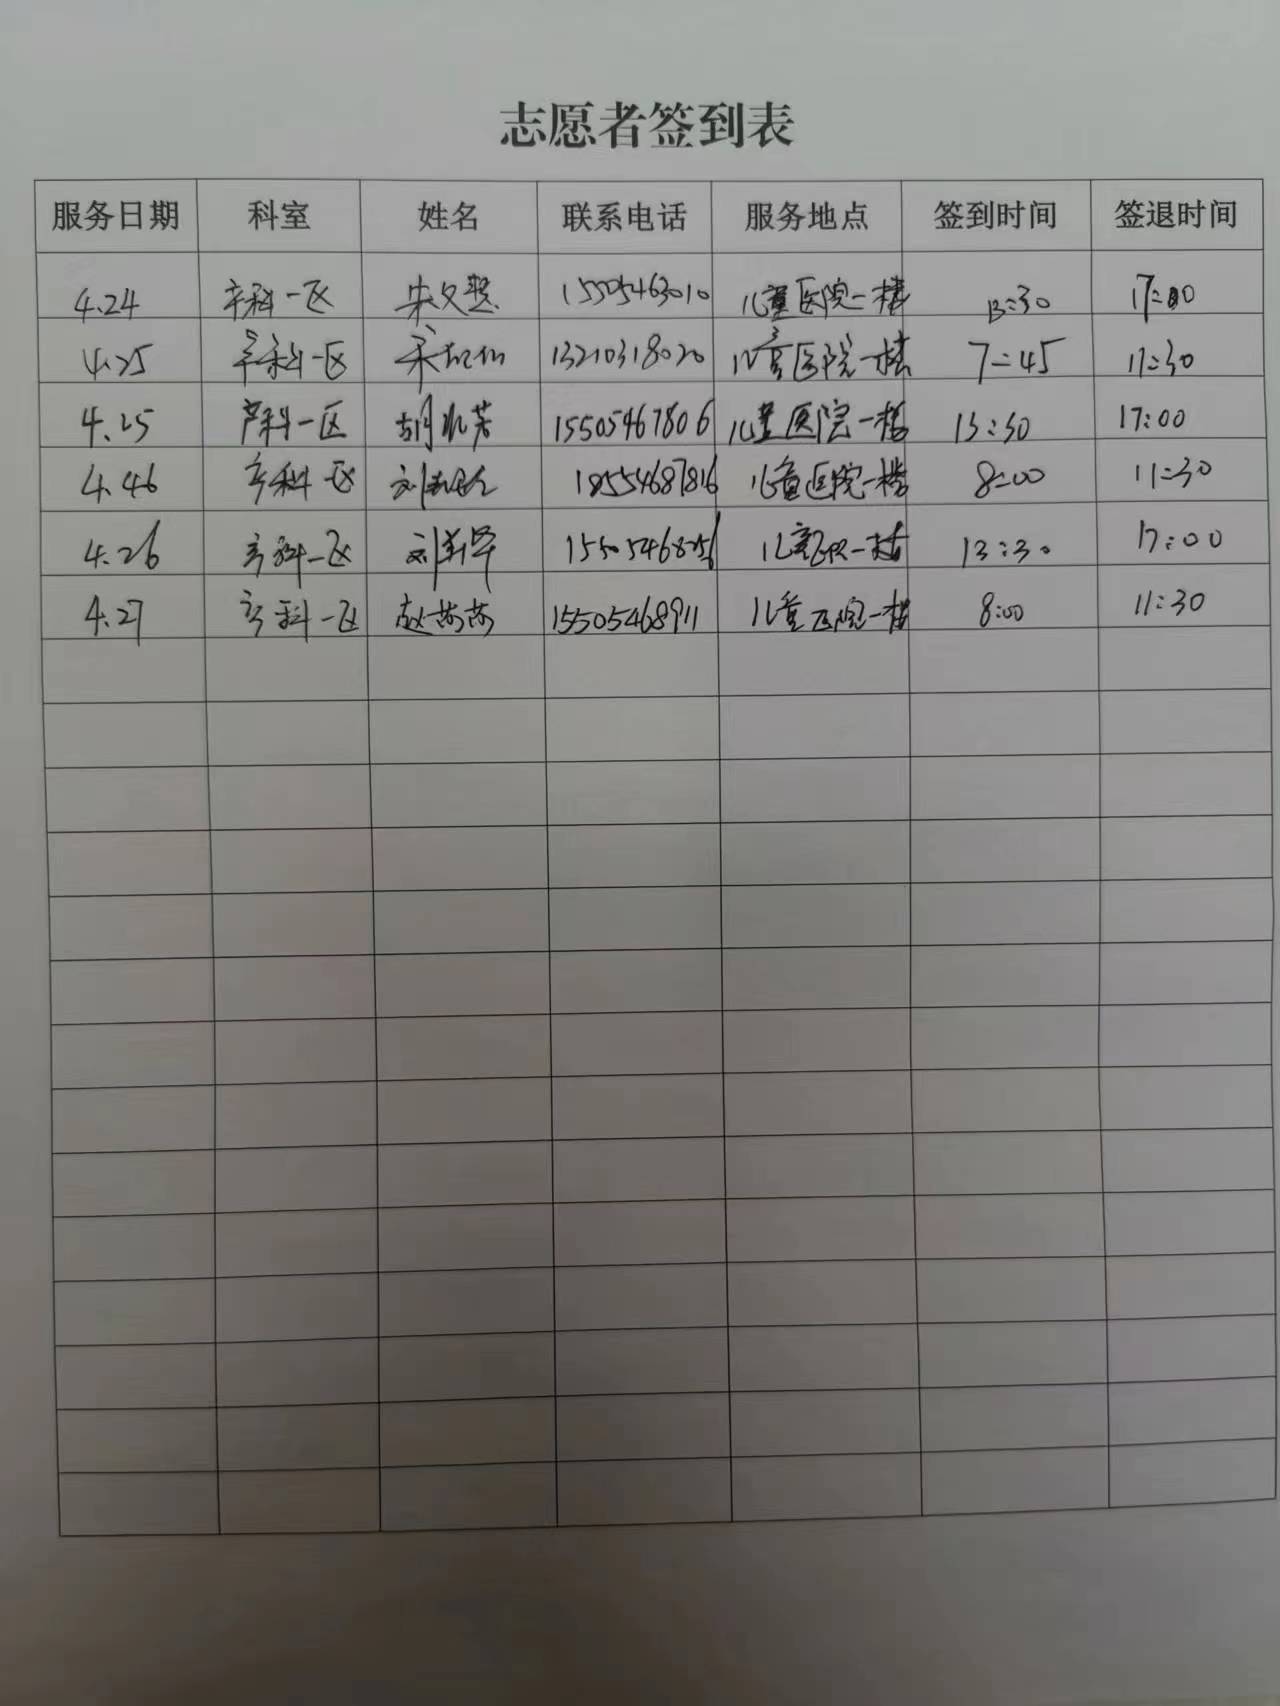 志愿者签到表
服务日期 科室 姓名 联系电话 服务地点 签到时间 签退时间
4.24 产科一区 宋文慧 15505463010 儿童医院一楼 13:30 17:00
4.25 产科一区 宋 13210318020 儿童医院一楼 7:45 11:30
4.25 产科一区 胡 15505467806 儿童医院一楼 13:30 17:00
4.26 产科一区 刘 18554687816 儿童医院一楼 8:00 11:30
4.26 产科一区 刘 儿童医院一楼 13:30 17:00
4.27 产科一区 赵莎莎 15505468911 儿童医院一楼 8:00 11:30